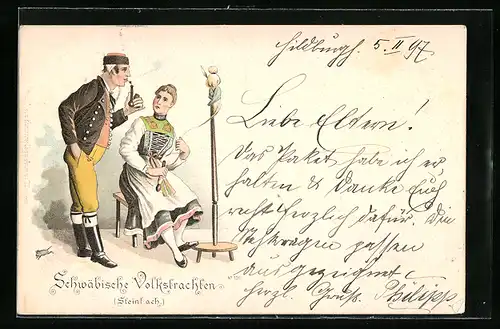 Hildburgh. 5. II 97
Liebe Eltern!
Das Paket habe ich er,
halten & danke Euch
recht herzlich dafür. Die
passen
ausgezeichnet
herzl. Gruß. Philipp.
Schwäbische Volkstrachten
(Steinlach.)